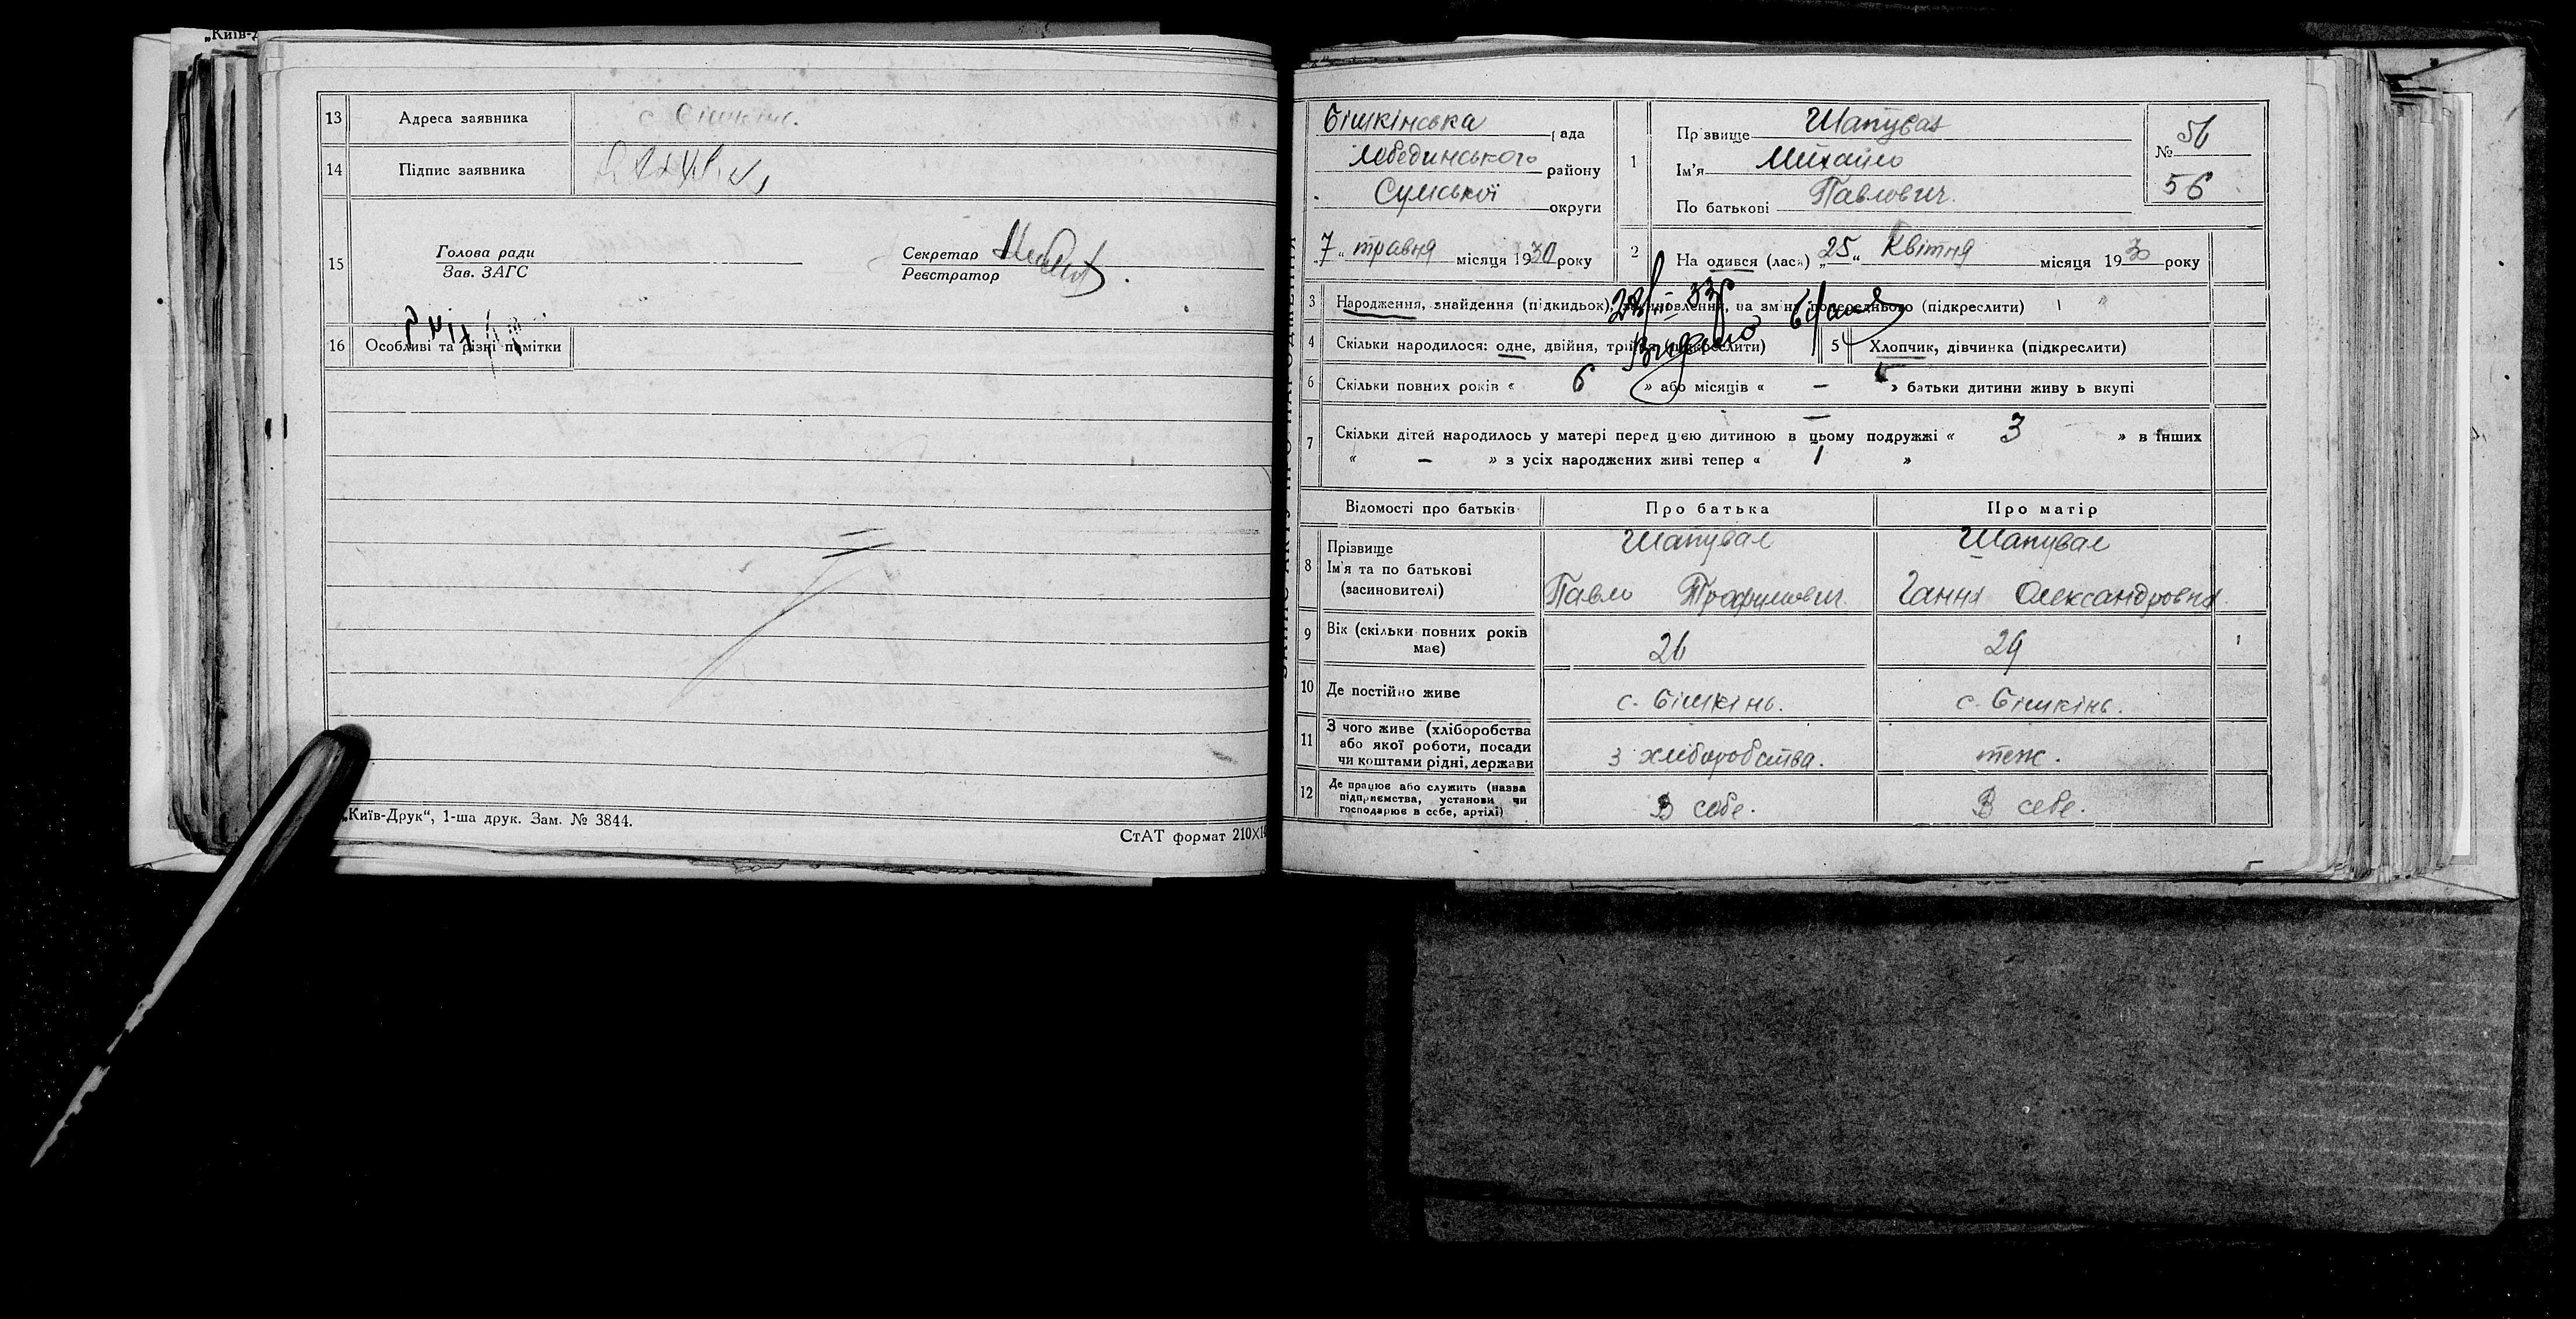 „Київ-
13 Адреса заявника с. Бішкінь.
14 Підпис заявника
15 Голова ради
Зав. ЗАГС
Секретар
Реєстратор
16 Особливі та різні помітки
„Київ-Друк“, 1-ша друк. Зам. № 3844.
СтАТ формат 210×14
Бішкінська рада
Лебединського району
Сумської округи
„7“ травня місяця 1930 року
1 Прізвище Шапувал
Ім'я Михайло
По батькові Павлович.
№ 56
56
2 На одився (лася) „25“ Квітня місяця 1930 року
3 Народження, знайдення (підкидьок), відновлення, на зміну попереднього (підкреслити)
4 Скільки народилося: одне, двійня, трійня (підкреслити)
5 Хлопчик, дівчинка (підкреслити)
Видано
6 Скільки повних років « 6 » або місяців « — » батьки дитини живу ь вкупі
7 Скільки дітей народилось у матері перед цією дитиною в цьому подружжі « 3 » в інших
« — » з усіх народжених живі тепер « 1 »
Відомості про батьків Про батька Про матір
8 Прізвище Ім'я та по батькові (засиновителі)
Шапувал Шапувал
Павло Трофимович Ганна Олександровна
9 Вік (скільки повних років має) 26 29
10 Де постійно живе с. Бішкінь. с. Бішкінь.
11 З чого живе (хліборобства або якої роботи, посади чи коштами рідні, держави
з хліборобства. теж.
12 Де працює або служить (назва підприємства, установи чи господарює в себе, артілі)
В себе. В себе.